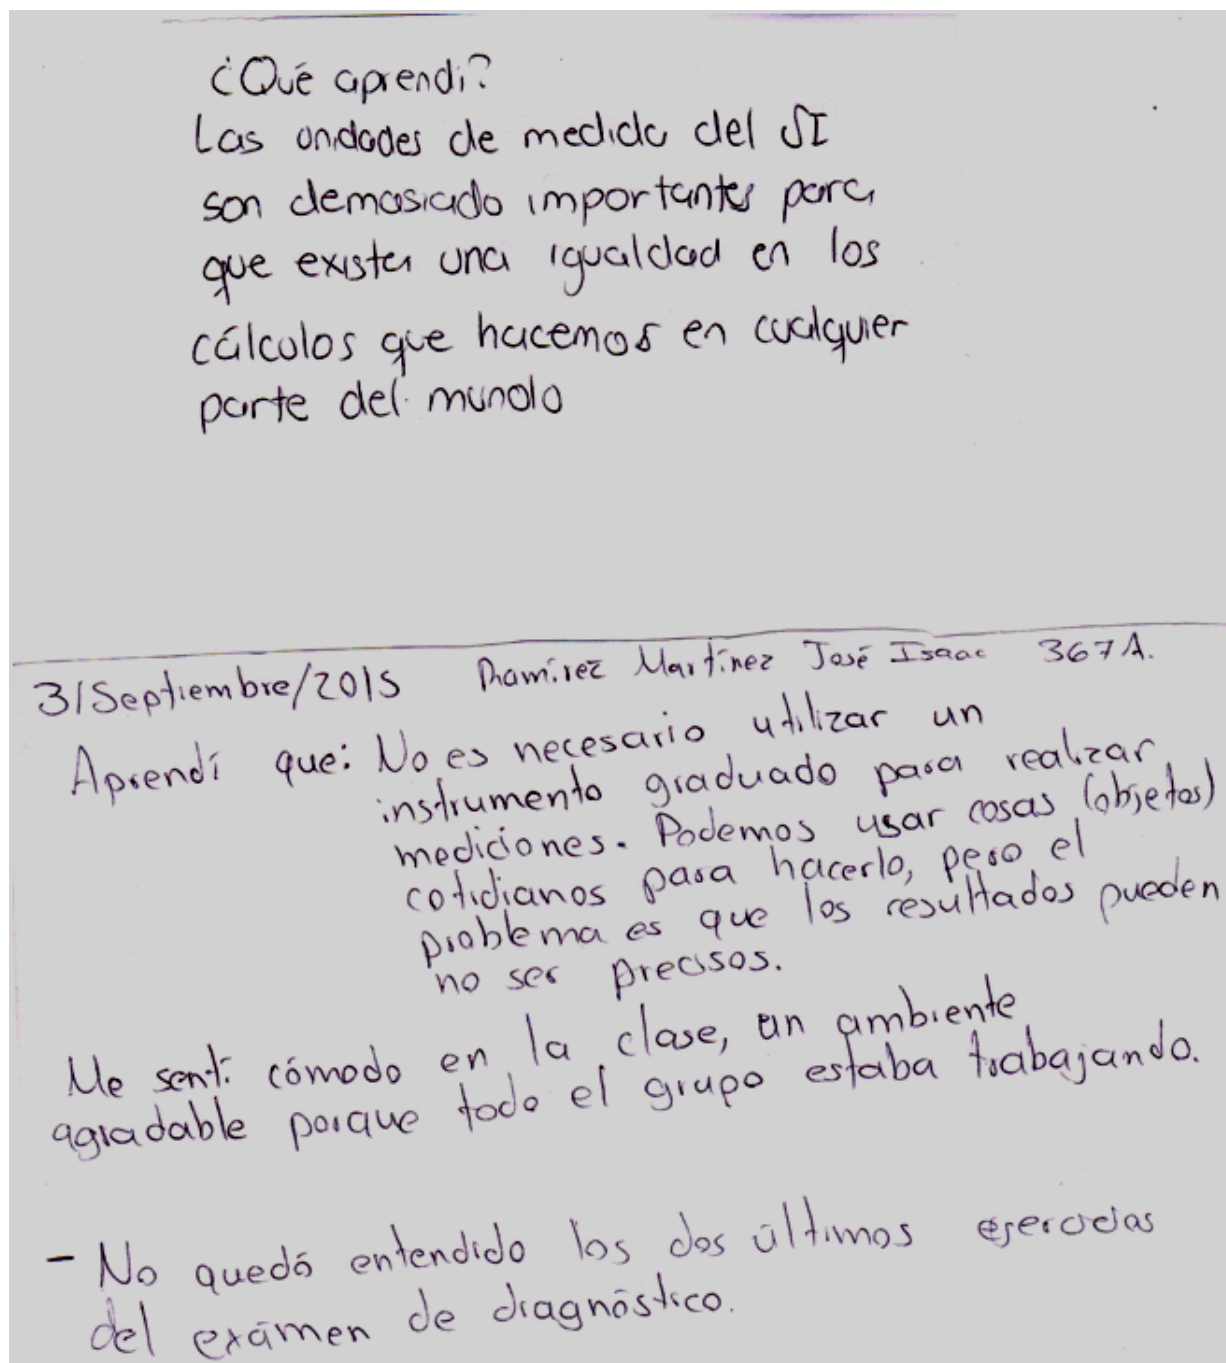 ¿Qué aprendi?
Las unidades de medida del SI
son demasiado importantes para
que exista una igualdad en los
cálculos que hacemos en cualquier
parte del mundo
3/Septiembre/2015 Ramírez Martínez José Isaac 367A.
Aprendí que: No es necesario utilizar un
instrumento graduado para realizar
mediciones. Podemos usar cosas (objetos)
cotidianos para hacerlo, pero el
problema es que los resultados pueden
no ser precisos.
Me sentí cómodo en la clase, un ambiente
agradable porque todo el grupo estaba trabajando.
- No quedó entendido los dos últimos ejercicios
del exámen de diagnóstico.